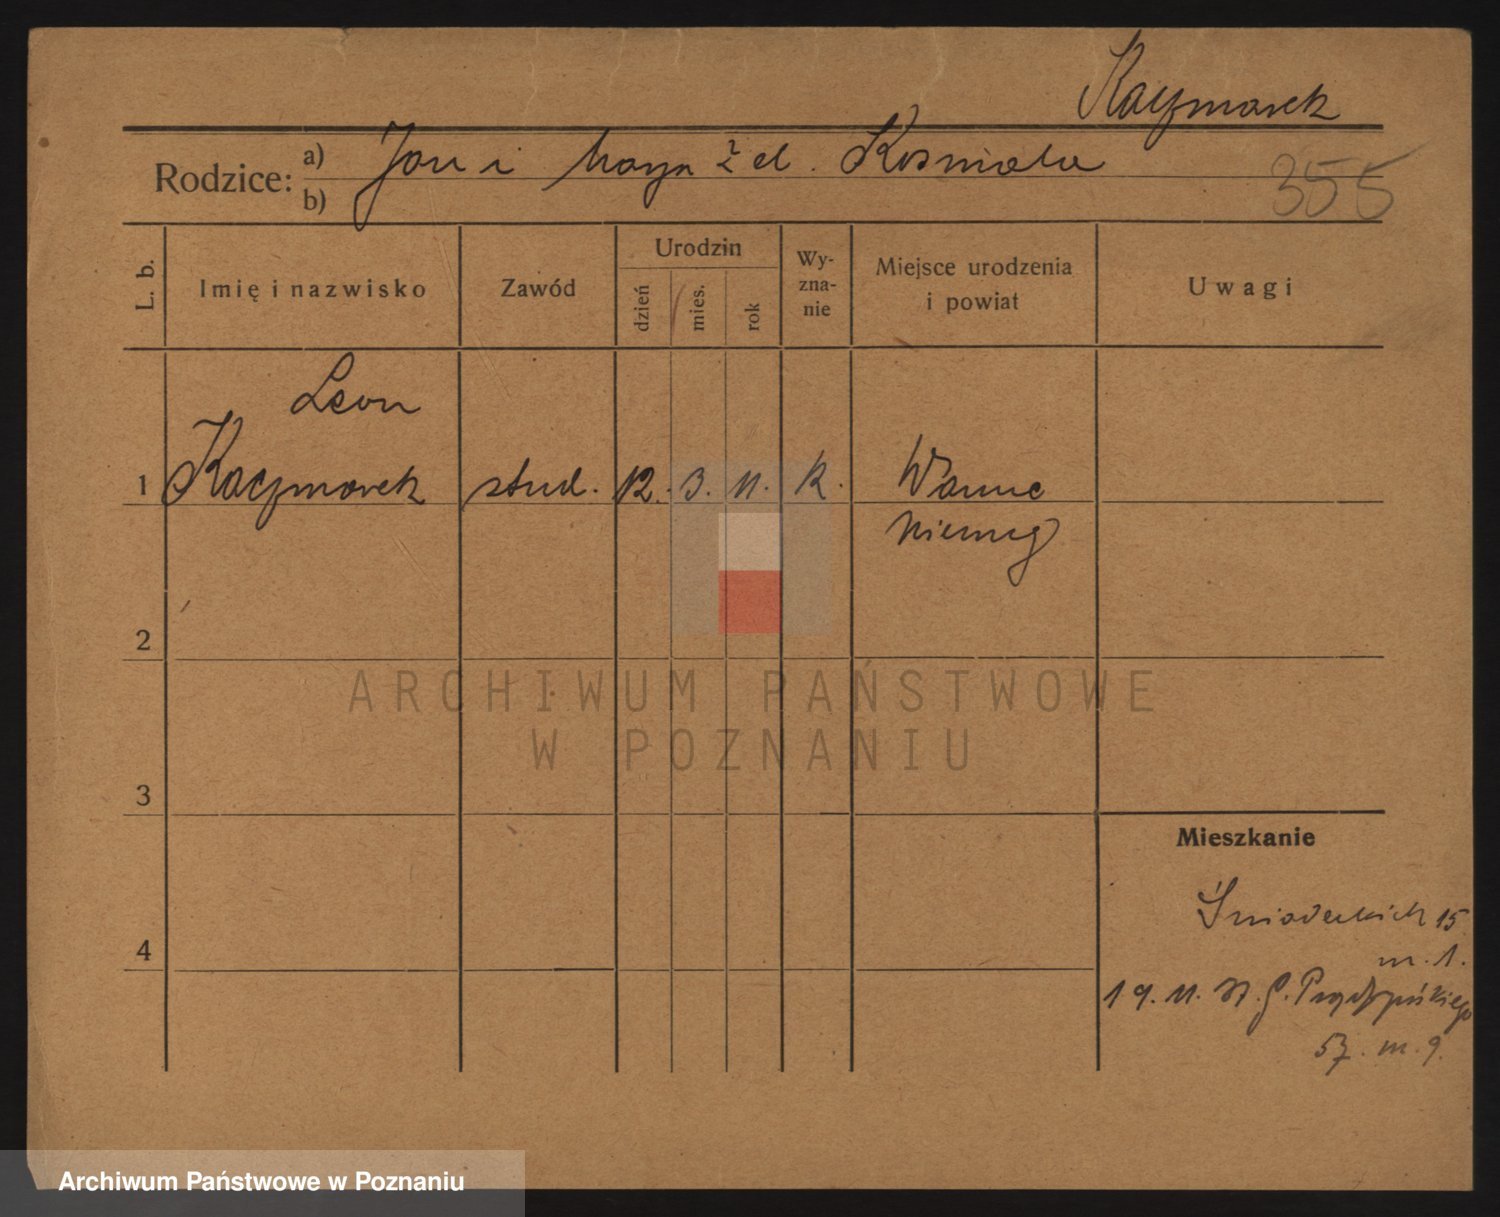 Kaczmarek
Rodzice: a) Jan i Marja z d. Kosmala
b)
355
L. b.
Imię i nazwisko
Zawód
Urodzin
dzień
mies.
rok
Wy-
zna-
nie
Miejsce urodzenia
i powiat
Uwagi
Leon
1 Kaczmarek stud. 12. 3. 11. k. Wanne
Niemcy
2
ARCHIWUM PAŃSTWOWE
W POZNANIU
3
Mieszkanie
Śniadeckich 15
m. 1.
4
19. 11. 31. G. Prądzyńskiego
57. m. 9.
Archiwum Państwowe w Poznaniu